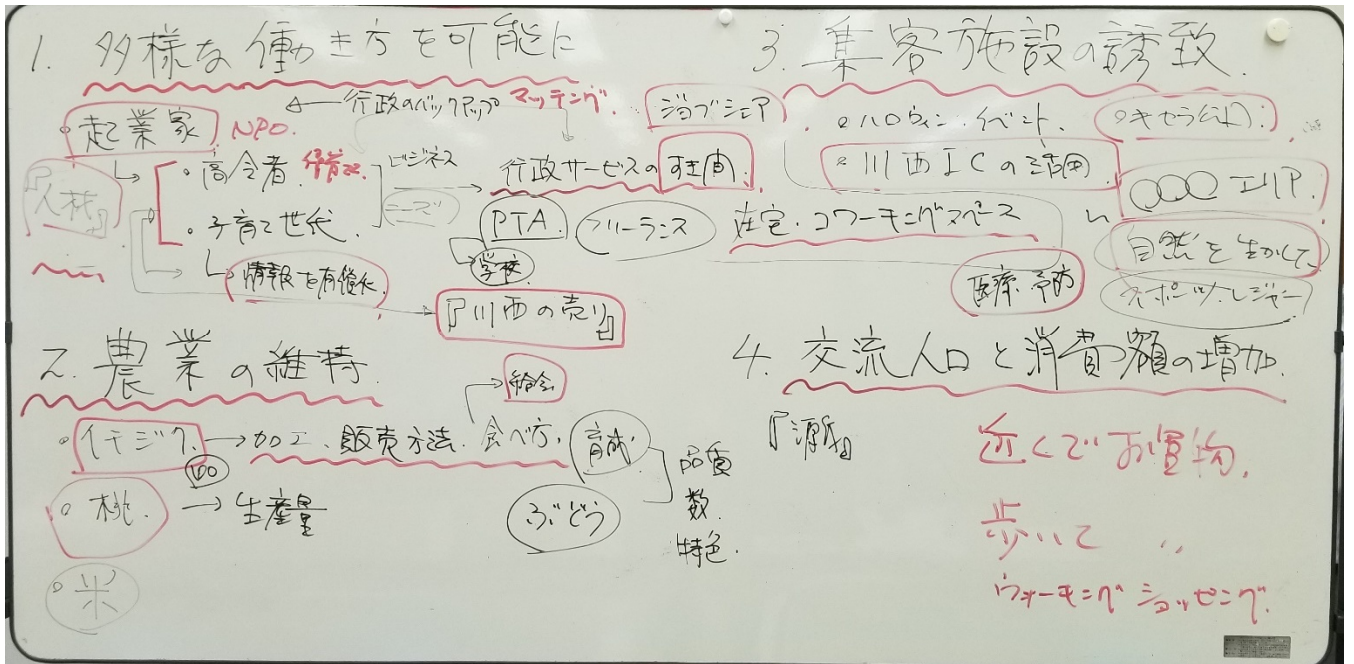 1. 多様な働き方を可能に
行政のバックアップ マッチング
ジョブシェア
起業家 NPO.
『人材』
・高令者
ビジネス
ニーズ
行政サービスのすき間
・子育て世代
PTA
学校
フリーランス
在宅・コワーキングスペース
情報を有償化
『川西の売り』
医療・予防
2. 農業の維持
給食
・イチジク → 加工、販売方法、食べ方、
育成
品質
数
特色
・桃 → 生産量
ぶどう
・米
3. 集客施設の誘致
・ハロウィン・イベント、
・キセラ
・川西ICの活用
○○○エリア
自然を生かして
スポーツ・レジャー
4. 交流人口と消費額の増加
近くでお買物
歩いて 〃
ウォーキングショッピング